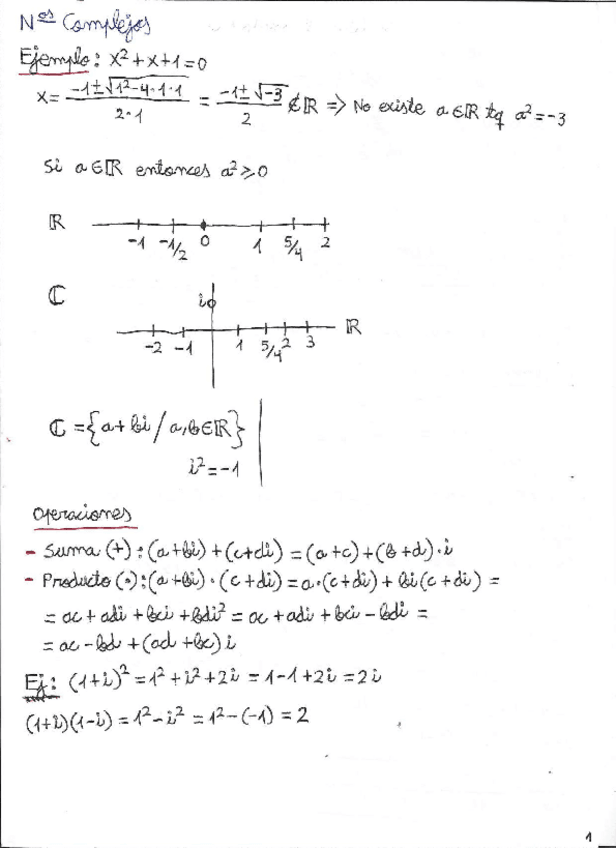 Nos Complejos
Ejemplo: x²+x+1=0
x = (-1±√(1²-4·1·1))/(2·1) = (-1±√-3)/2 ∉ ℝ ⇒ No existe a∈ℝ tq a²=-3
Si a∈ℝ entonces a²≥0
ℝ
-1 -1/2 0 1 5/4 2
ℂ i
ℝ
-2 -1 1 5/4 2 3
ℂ = {a+bi / a,b∈ℝ}
i²=-1
Operaciones
- Suma (+): (a+bi)+(c+di)=(a+c)+(b+d)·i
- Producto (·): (a+bi)·(c+di)=a·(c+di)+bi(c+di)=
= ac+adi+bci+bdi² = ac+adi+bci-bdi =
= ac-bd+(ad+bc)i
Ej: (1+i)²=1²+i²+2i=1-1+2i=2i
(1+i)(1-i)=1²-i²=1²-(-1)=2
1